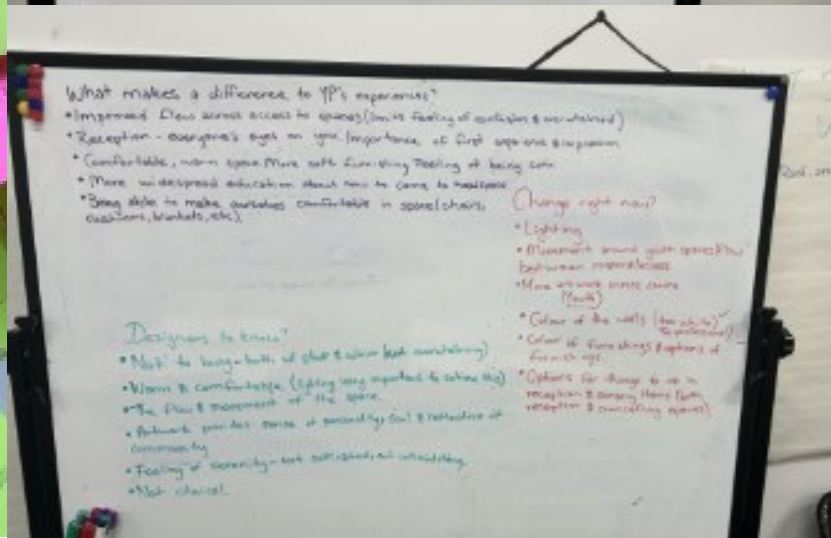 What makes a difference to YP's experiences?
• Improved flow across access to spaces (limits feeling of confusion & overwhelmed)
• Reception - everyone's eyes on you. Importance of first experience & impression
• Comfortable, warm space. More soft furnishing Feeling of being
• More widespread education about how to come to headspace
• Being able to make ourselves comfortable in space (chairs,
cushions, blankets, etc).
Change right now?
• Lighting
• Movement around youth spaces
between
• More artwork across centre
(Youth)
• Colour of the walls (too white)
• Colour of furnishings & options of
furnishings
• Options for change to up in
reception & sensory items (both
reception & counselling spaces)
Designers to know?
• Not to busy - both of &
• Warm & comfortable (lighting very important to)
• The flow & movement of the space
• Artwork provides sense of & reflective of
community
• Feeling of serenity - not
• Not clinical